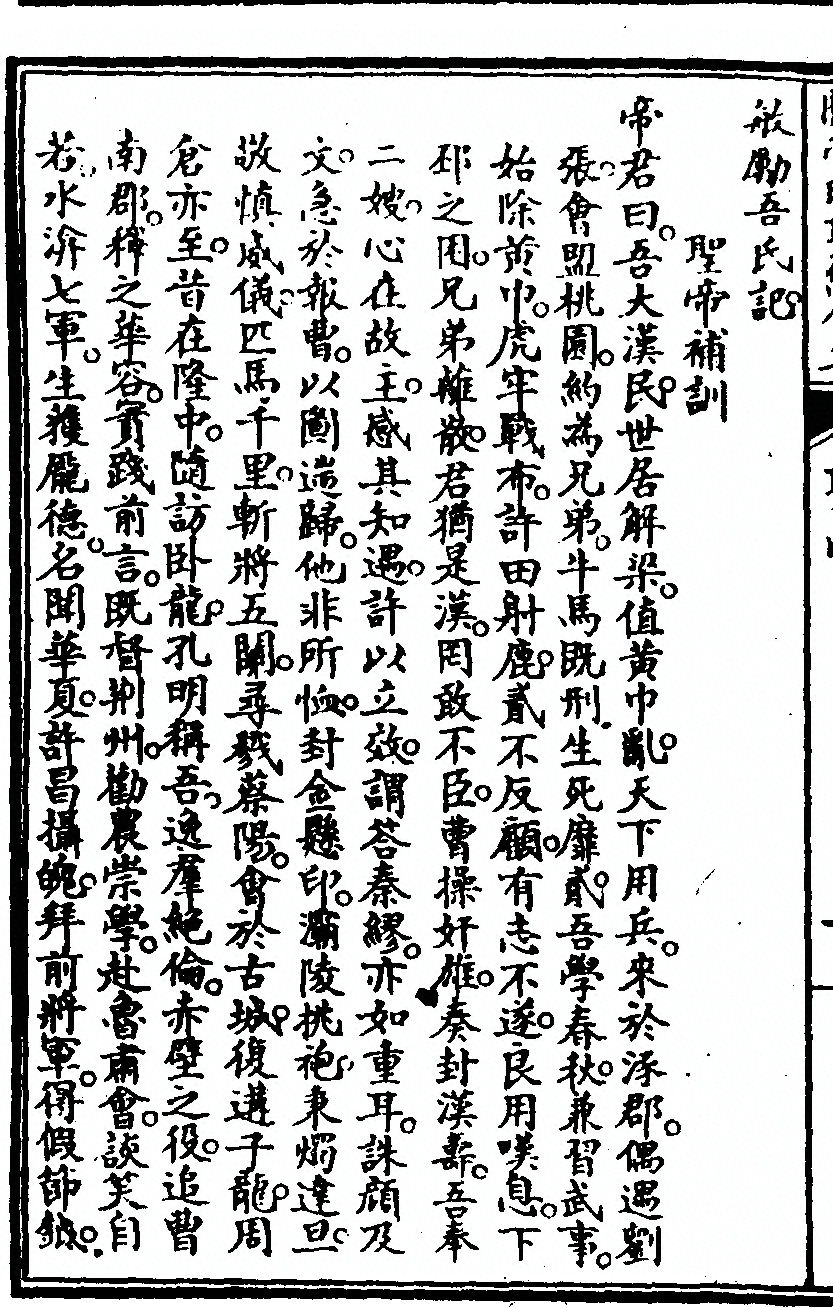 敬勵吾氏記。
聖帝補訓
帝君曰。吾大漢民。世居解梁。值黃巾亂。天下用兵。來於涿郡。偶遇劉
張。會盟桃園。約為兄弟。牛馬既刑。生死靡貳。吾學春秋。兼習武事。
始除黃巾。虎牢戰布。許田射鹿。貳不反顧。有志不遂。良用嘆息。下
邳之困。兄弟離散。君猶是漢。罔敢不臣。曹操奸雄。奏封漢壽。吾奉
二嫂。心在故主。感其知遇。許以立效。謂答秦繆。亦如重耳。誅顏及
文。急於報曹。以圖遄歸。他非所恤。封金懸印。灞陵挑袍。秉燭達旦。
敬慎威儀。匹馬千里。斬將五關。尋戮蔡陽。會於古城。復遘子龍。周
倉亦至。昔在隆中。隨訪卧龍。孔明稱吾。逸羣絕倫。赤壁之役。追曹
南郡。釋之華容。實踐前言。既督荆州。勸農崇學。赴魯肅會。談笑自
若。水渰七軍。生獲龐德。名聞華夏。許昌攝魄。拜前將軍。得假節鉞。